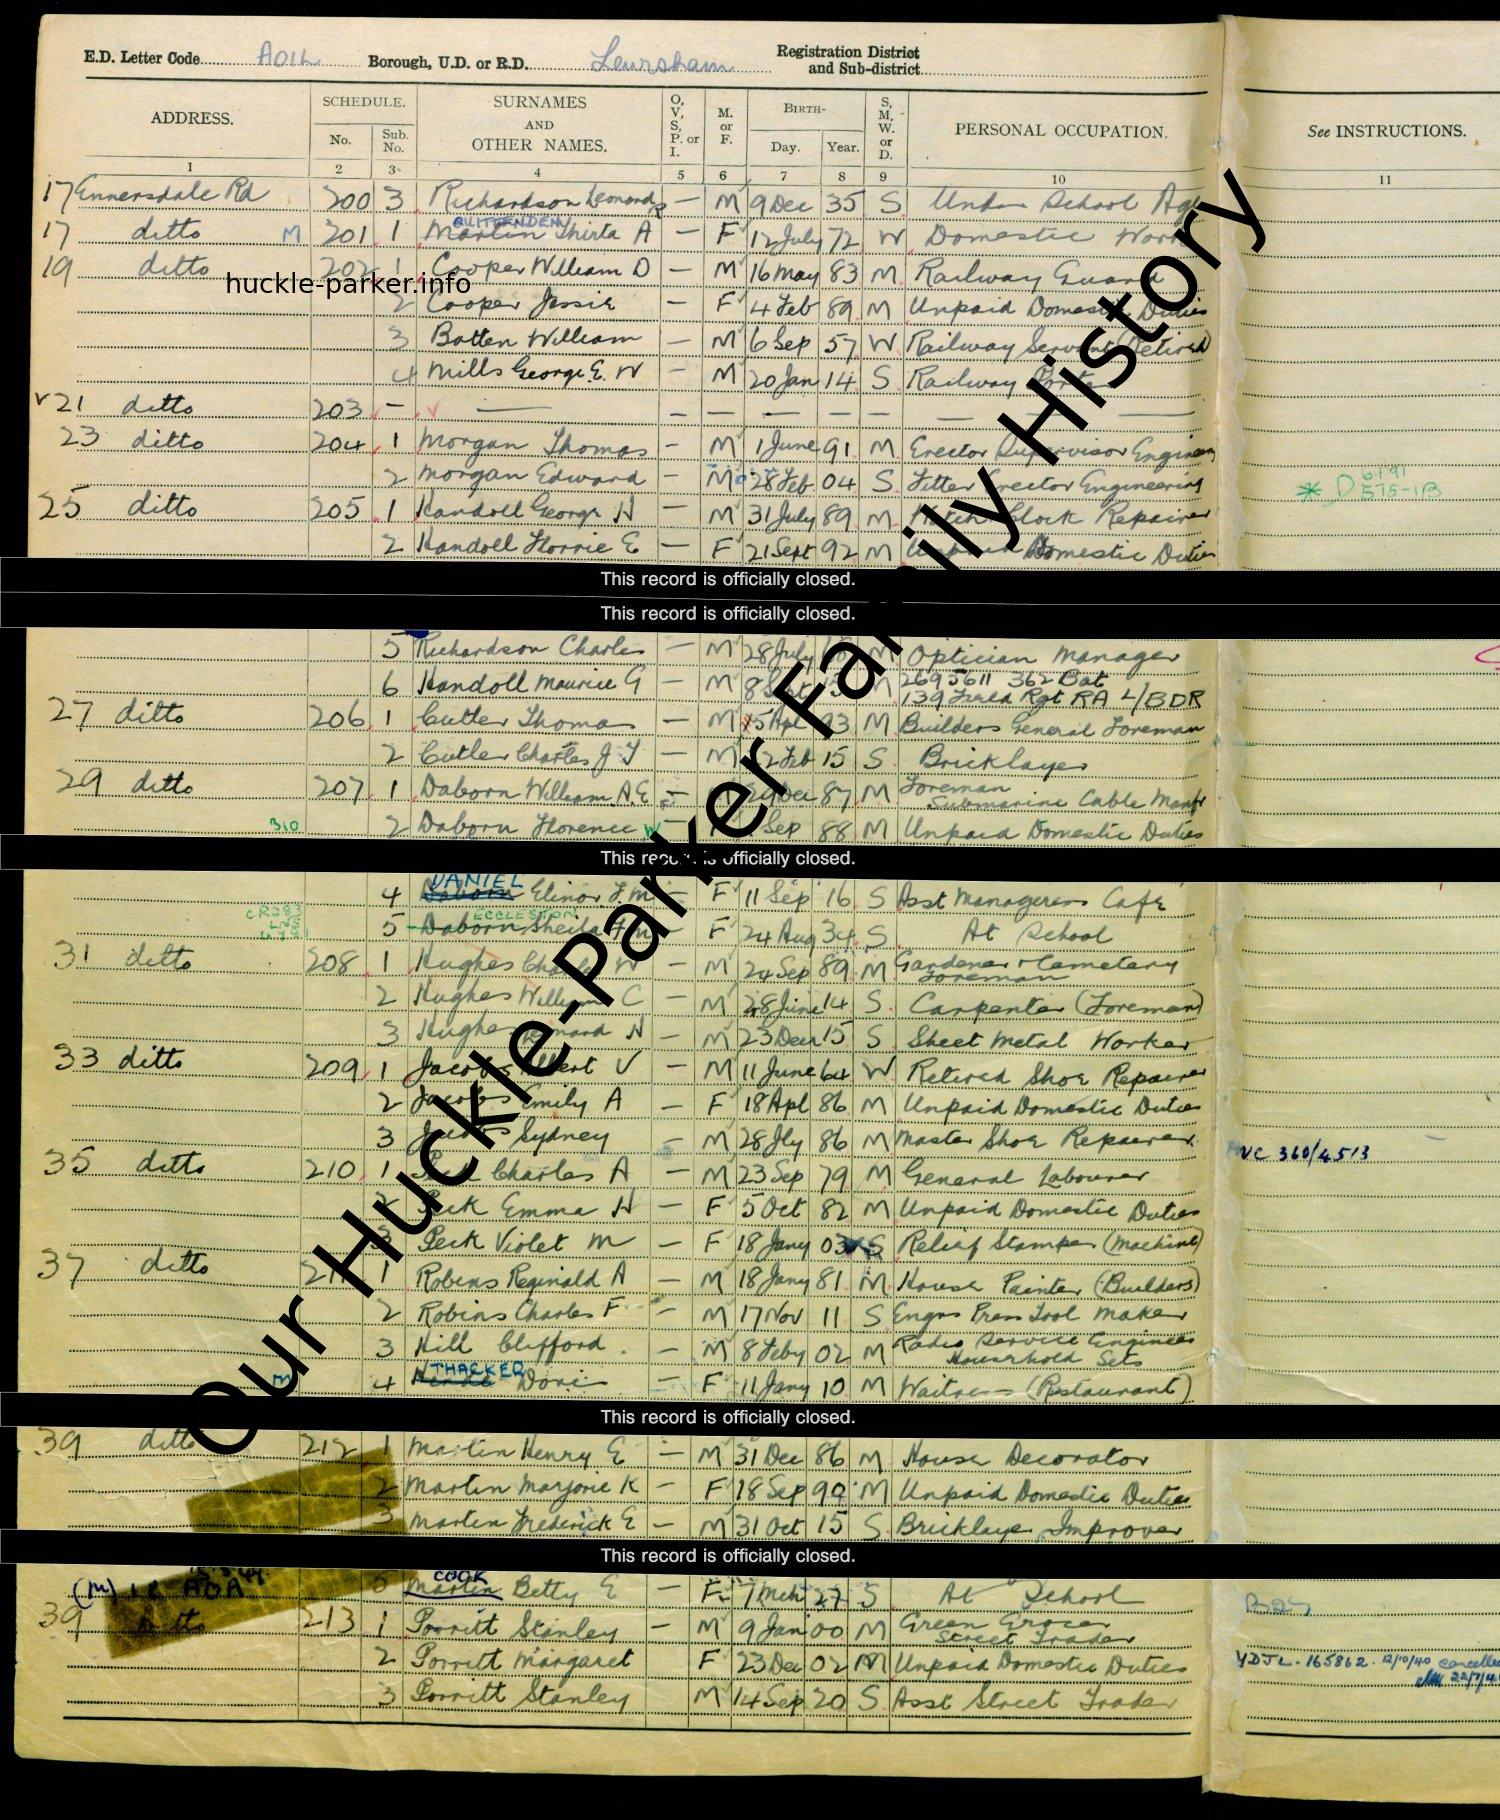 E.D. Letter Code AOIL Borough, U.D. or R.D. Lewisham Registration District and Sub-district
ADDRESS. SCHEDULE. No. Sub. No. SURNAMES AND OTHER NAMES. O, V, S, P. or I. M. or F. BIRTH- Day. Year. S, M, W. or D. PERSONAL OCCUPATION. See INSTRUCTIONS.
1 2 3 4 5 6 7 8 9 10 11
17 Ennersdale Rd 200 3 Richardson Leonard R — M 9 Dec 35 S Under School Age
QUITTENDEN
17 ditto M 201 1 Martin Thirta A — F 12 July 72 W Domestic Work
19 ditto 202 1 Cooper William D — M 16 May 83 M Railway Guard
huckle-parker.info
2 Cooper Jessie — F 4 Feb 89 M Unpaid Domestic Duties
3 Batten William — M 6 Sep 57 W Railway Servant (Retired)
4 Mills George E. W — M 20 Jan 14 S Railway Porter
21 ditto 203 — — — — — — — —
23 ditto 204 1 Morgan Thomas — M 1 June 91 M Erector Supervisor Engineering
2 Morgan Edward — M 28 Feb 04 S Fitter Erector Engineering
25 ditto 205 1 Handoll George H — M 31 July 89 M Watch Clock Repairer
2 Handoll Florrie E — F 21 Sept 92 M Unpaid Domestic Duties
This record is officially closed.
This record is officially closed.
5 Richardson Charles — M 28 July M Optician Manager
6 Handoll Maurice G — M 8 Sept 15 M 2695611 362 Bat
139 Field Rgt RA L/BDR
27 ditto 206 1 Cutler Thomas — M 15 Apl 93 M Builders General Foreman
2 Cutler Charles J T — M 12 Feb 15 S Bricklayer
29 ditto 207 1 Daborn William A.E — 29 Dec 87 M Foreman
Submarine Cable Manfr
310 2 Daborn Florence W — Sep 88 M Unpaid Domestic Duties
This record is officially closed.
DANIEL
4 Daborn Elinor F.M — F 11 Sep 16 S Asst Manageress Cafe
ECCLESTON
5 Daborn Sheila F M — F 24 Aug 34 S At School
31 ditto 208 1 Hughes Charles W — M 24 Sep 89 M Gardener Cemetery
Foreman
2 Hughes William C — M 28 June 14 S Carpenter (Foreman)
3 Hughes Leonard H — M 23 Decr 15 S Sheet Metal Worker
33 ditto 209 1 Jacobs Albert V — M 11 June 64 W Retired Shoe Repairer
2 Jacobs Emily A — F 18 Apl 86 M Unpaid Domestic Duties
3 Jacobs Sydney — M 28 Jly 86 M Master Shoe Repairer
VC 360/4513
35 ditto 210 1 Peck Charles A — M 23 Sep 79 M General Labourer
2 Peck Emma H — F 5 Oct 82 M Unpaid Domestic Duties
3 Peck Violet M — F 18 Jany 03 S Relief Stamper (Machine)
37 ditto 211 1 Robins Reginald A — M 18 Jany 81 M House Painter (Builders)
2 Robins Charles F — M 17 Nov 11 S Engrs Press Tool Maker
3 Hill Clifford — M 8 Feby 02 M Radio Service Engineer
Household Sets
THACKER
M 4 Doris — F 11 Jany 10 M Waitress (Restaurant)
This record is officially closed.
39 ditto 212 1 Martin Henry E — M 31 Dec 86 M House Decorator
2 Martin Marjorie K — F 18 Sep 90 M Unpaid Domestic Duties
3 Martin Frederick E — M 31 Oct 15 S Bricklayer Improver
This record is officially closed.
COOK
(M) AOA 5 Martin Betty E — F 7 Mch 27 S At School
39 ditto 213 1 Porritt Stanley — M 9 Jan 00 M Green Grocer
Street Trader
2 Porritt Margaret F 23 Dec 02 M Unpaid Domestic Duties
YDJL. 165862. 12/10/40 cancelled
3 Porritt Stanley M 14 Sep 20 S Asst Street Trader
Our Huckle-Parker Family History